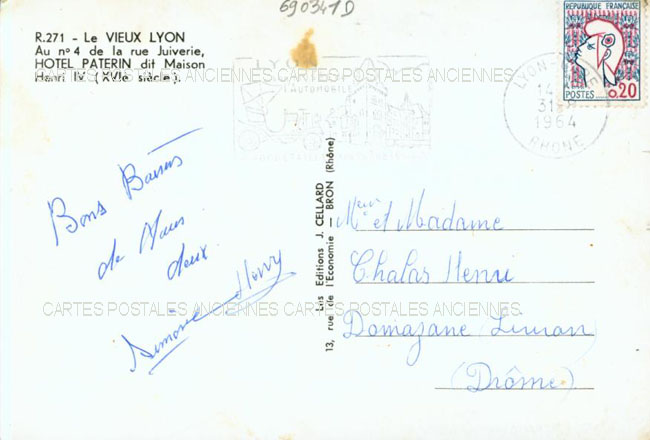 690341D
R.271 - Le VIEUX LYON
Au nº 4 de la rue Juiverie,
HOTEL PATERIN dit Maison
Henri IV (XVIe siècle).
CARTES POSTALES ANCIENNES CARTES POSTALES ANCIENNES
REPUBLIQUE FRANÇAISE
POSTES 0,20
LYON
14
31
1964
RHONE
LYON
L'AUTOMOBILE
Bons Baisers
de Nous
deux.
Simone Henry
13, rue de l'Economie — BRON (Rhône)
Les Editions J. CELLARD
Meur et Madame
Chalas Henri
Domazane Livron
(Drôme)
CARTES POSTALES ANCIENNES CARTES POSTALES ANCIENNES